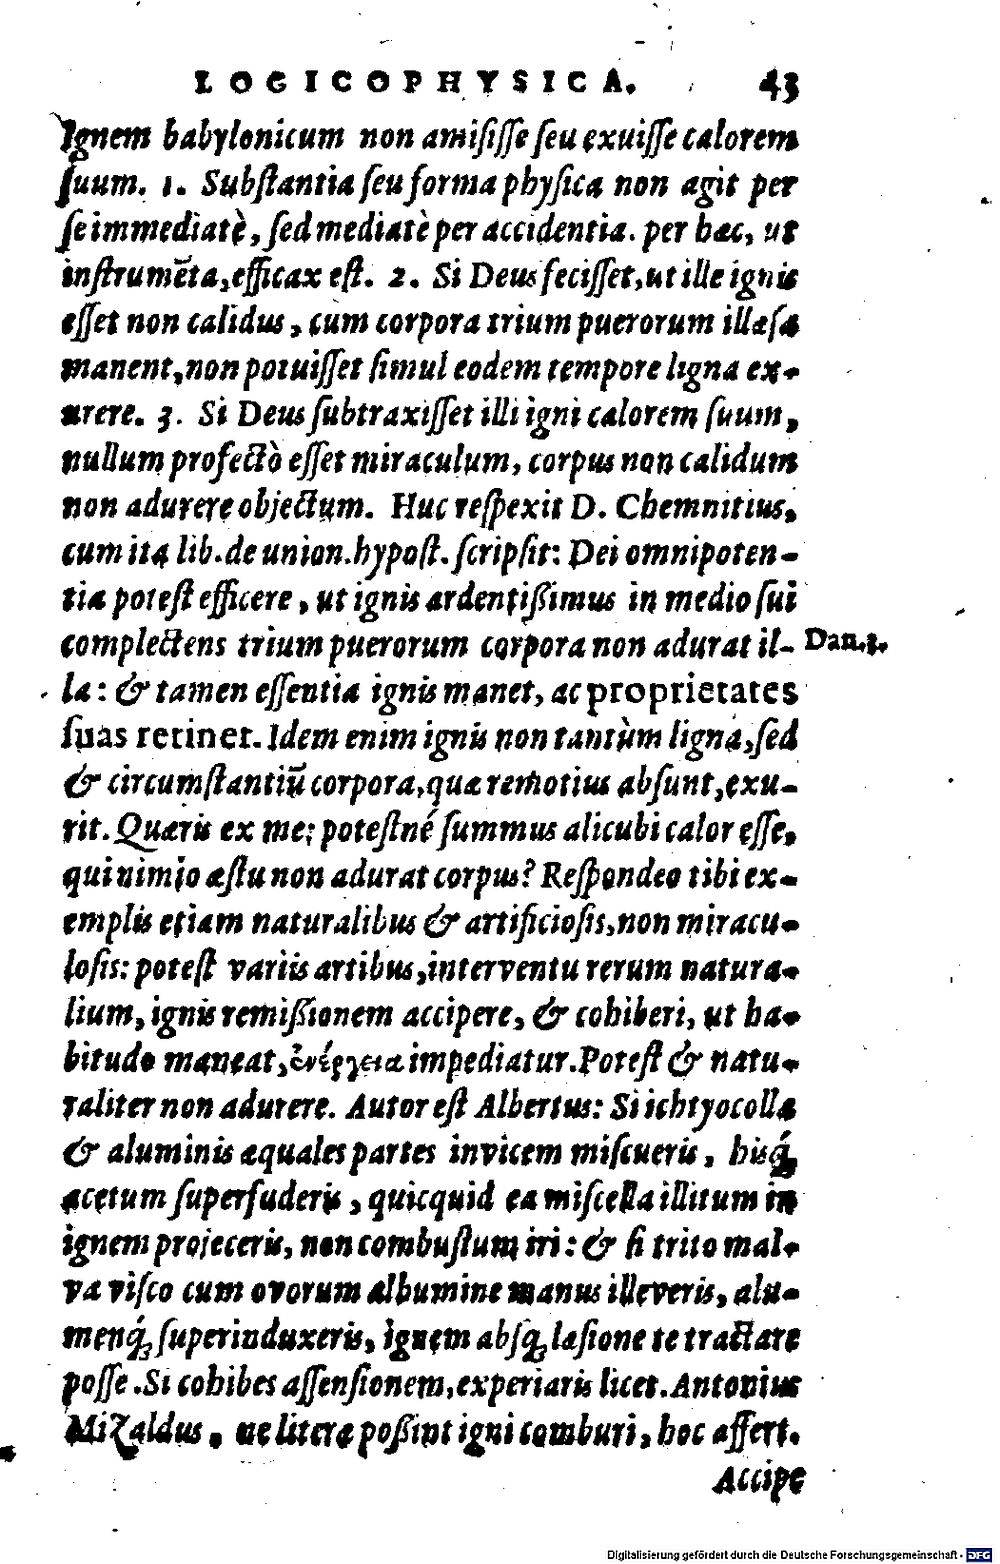 LOGICOPHYSICA. 43
Ignem babylonicum non amiſiſſe ſeu exuiſſe calorem
ſuum. 1. Subſtantia ſeu forma phyſica non agit per
ſe immediatè, ſed mediatè per accidentia. per hæc, ut
inſtrumēta, efficax eſt. 2. Si Deus feciſſet, ut ille ignis
eſſet non calidus, cum corpora trium puerorum illæſa
manent, non potuiſſet ſimul eodem tempore ligna ex-
urere. 3. Si Deus ſubtraxiſſet illi igni calorem ſuum,
nullum profectò eſſet miraculum, corpus non calidum
non adurere objectum. Huc reſpexit D. Chemnitius,
cum ita lib. de union. hypoſt. ſcripſit: Dei omnipoten-
tia poteſt efficere, ut ignis ardentißimus in medio ſui
complectens trium puerorum corpora non adurat il- Dan. 3.
la: & tamen eſſentia ignis manet, ac proprietates
ſuas retinet. Idem enim ignis non tantùm ligna, ſed
& circumſtantiū corpora, quæ remotius abſunt, exu-
rit. Quæris ex me; poteſtné ſummus alicubi calor eſſe,
qui nimio æſtu non adurat corpus? Reſpondeo tibi ex-
emplis etiam naturalibus & artificioſis, non miracu-
loſis: poteſt variis artibus, interventu rerum natura-
lium, ignis remißionem accipere, & cohiberi, ut ha-
bitudo maneat, ἐνέργεια impediatur. Poteſt & natu-
raliter non adurere. Autor eſt Albertus: Si ichtyocollæ
& aluminis æquales partes invicem miſcueris, bisq́;
acetum ſuperfuderis, quicquid ea miſcella illitum in
ignem projeceris, non combuſtum iri: & ſi trito mal-
va viſco cum ovorum albumine manus illeveris, alu-
menq́; ſuperinduxeris, ignem abſq; læſione te tractare
poſſe. Si cohibes aſſenſionem, experiaris licet. Antonius
Mizaldus, ne literæ poßint igni comburi, hoc affert.
Accipe
Digitalisierung gefördert durch die Deutsche Forschungsgemeinschaft - DFG